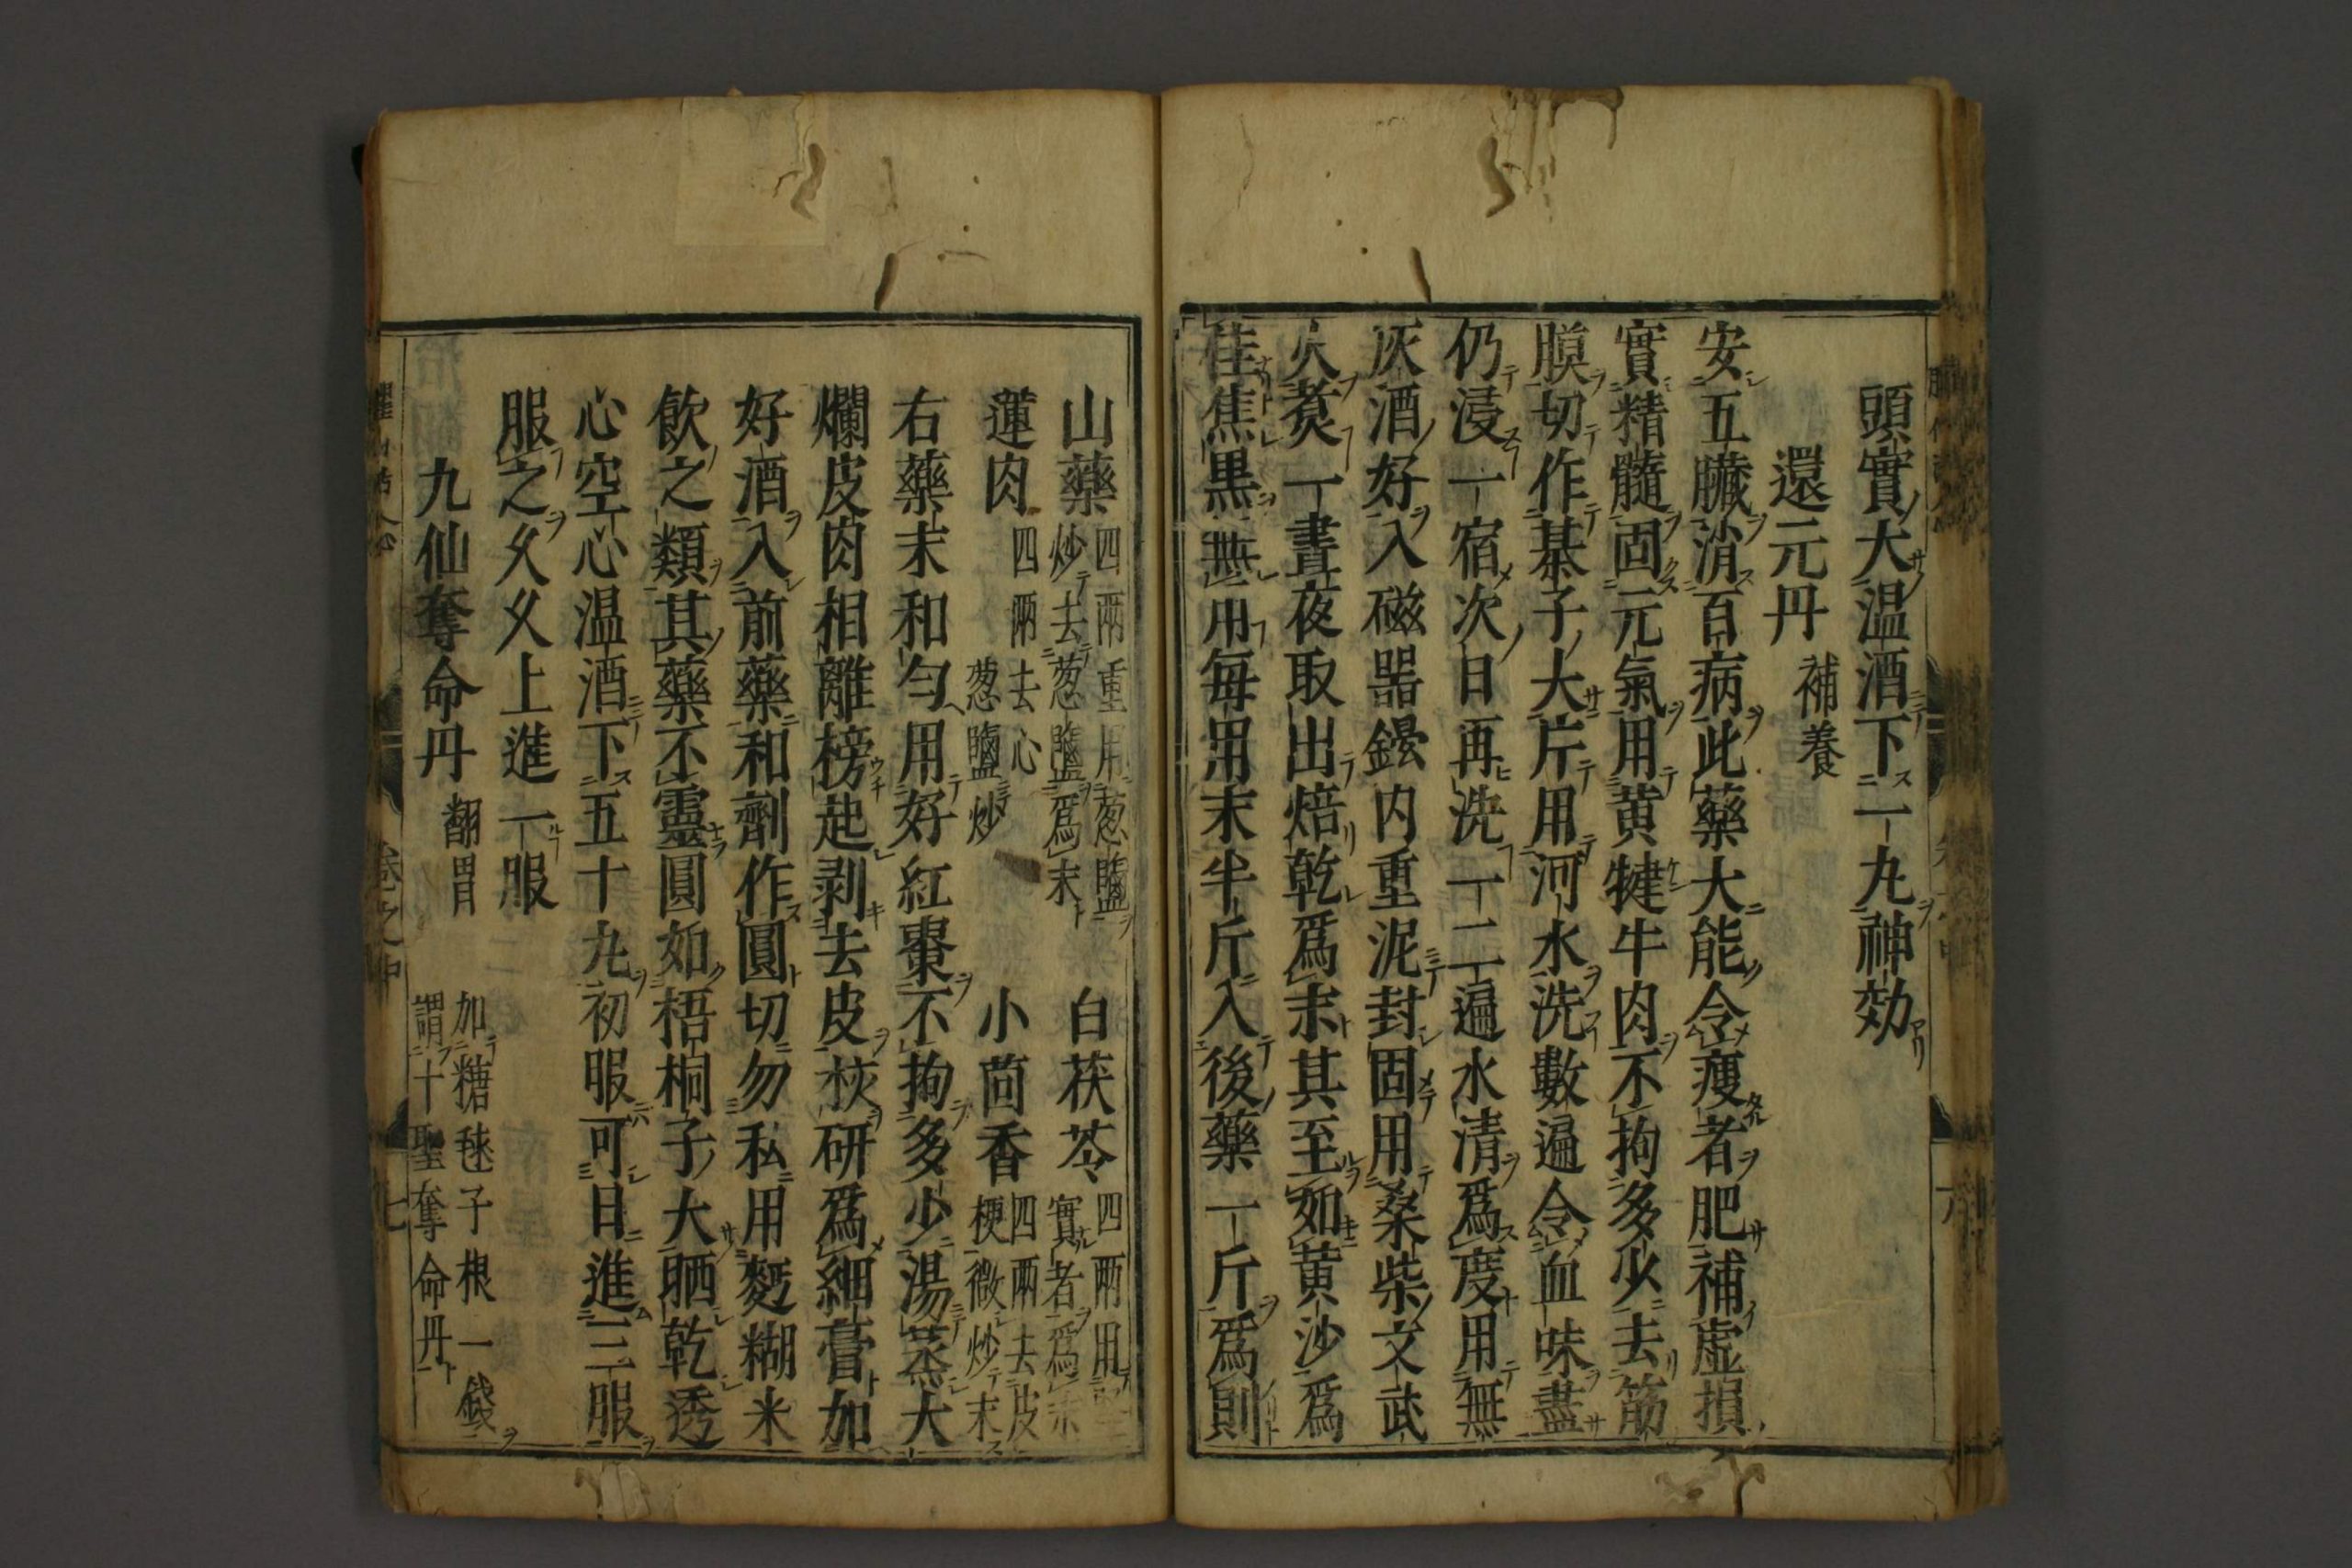 頭實大温酒下一丸神効
還元丹 補養
安五臟消百病此藥大能令瘦者肥補虛損
實精髓固元氣用黄犍牛肉不拘多少去筋
膜切作棊子大片用河水洗數遍令血味盡
仍浸一宿次日再洗一二遍水清爲度用無
灰酒好入磁噐鏝内重泥封固用桑柴文武
火煑一晝夜取出焙乾爲末其至如黄沙爲
佳焦黒無用每用末半斤入後藥一斤爲則
山藥 四兩重用葱鹽炒去葱鹽爲末 白茯苓 四兩用堅實者爲末
蓮肉 四兩去心葱鹽炒 小茴香 四兩去皮梗微炒末
右藥末和勻用好紅棗不拘多少湯蒸大
爛皮肉相離榜起剥去皮核研爲細膏加
好酒入前藥和劑作圓切勿私用麪糊米
飮之類其藥不靈圓如梧桐子大晒乾透
心空心温酒下五十丸初服可日進三服
服之久久上進一服
九仙奪命丹 翻胃 加糖毬子根一錢謂十聖奪命丹
卷之中
七
六